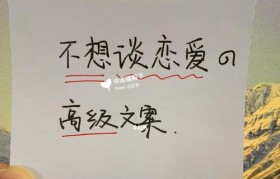 不想谈恋爱の
高级文案.